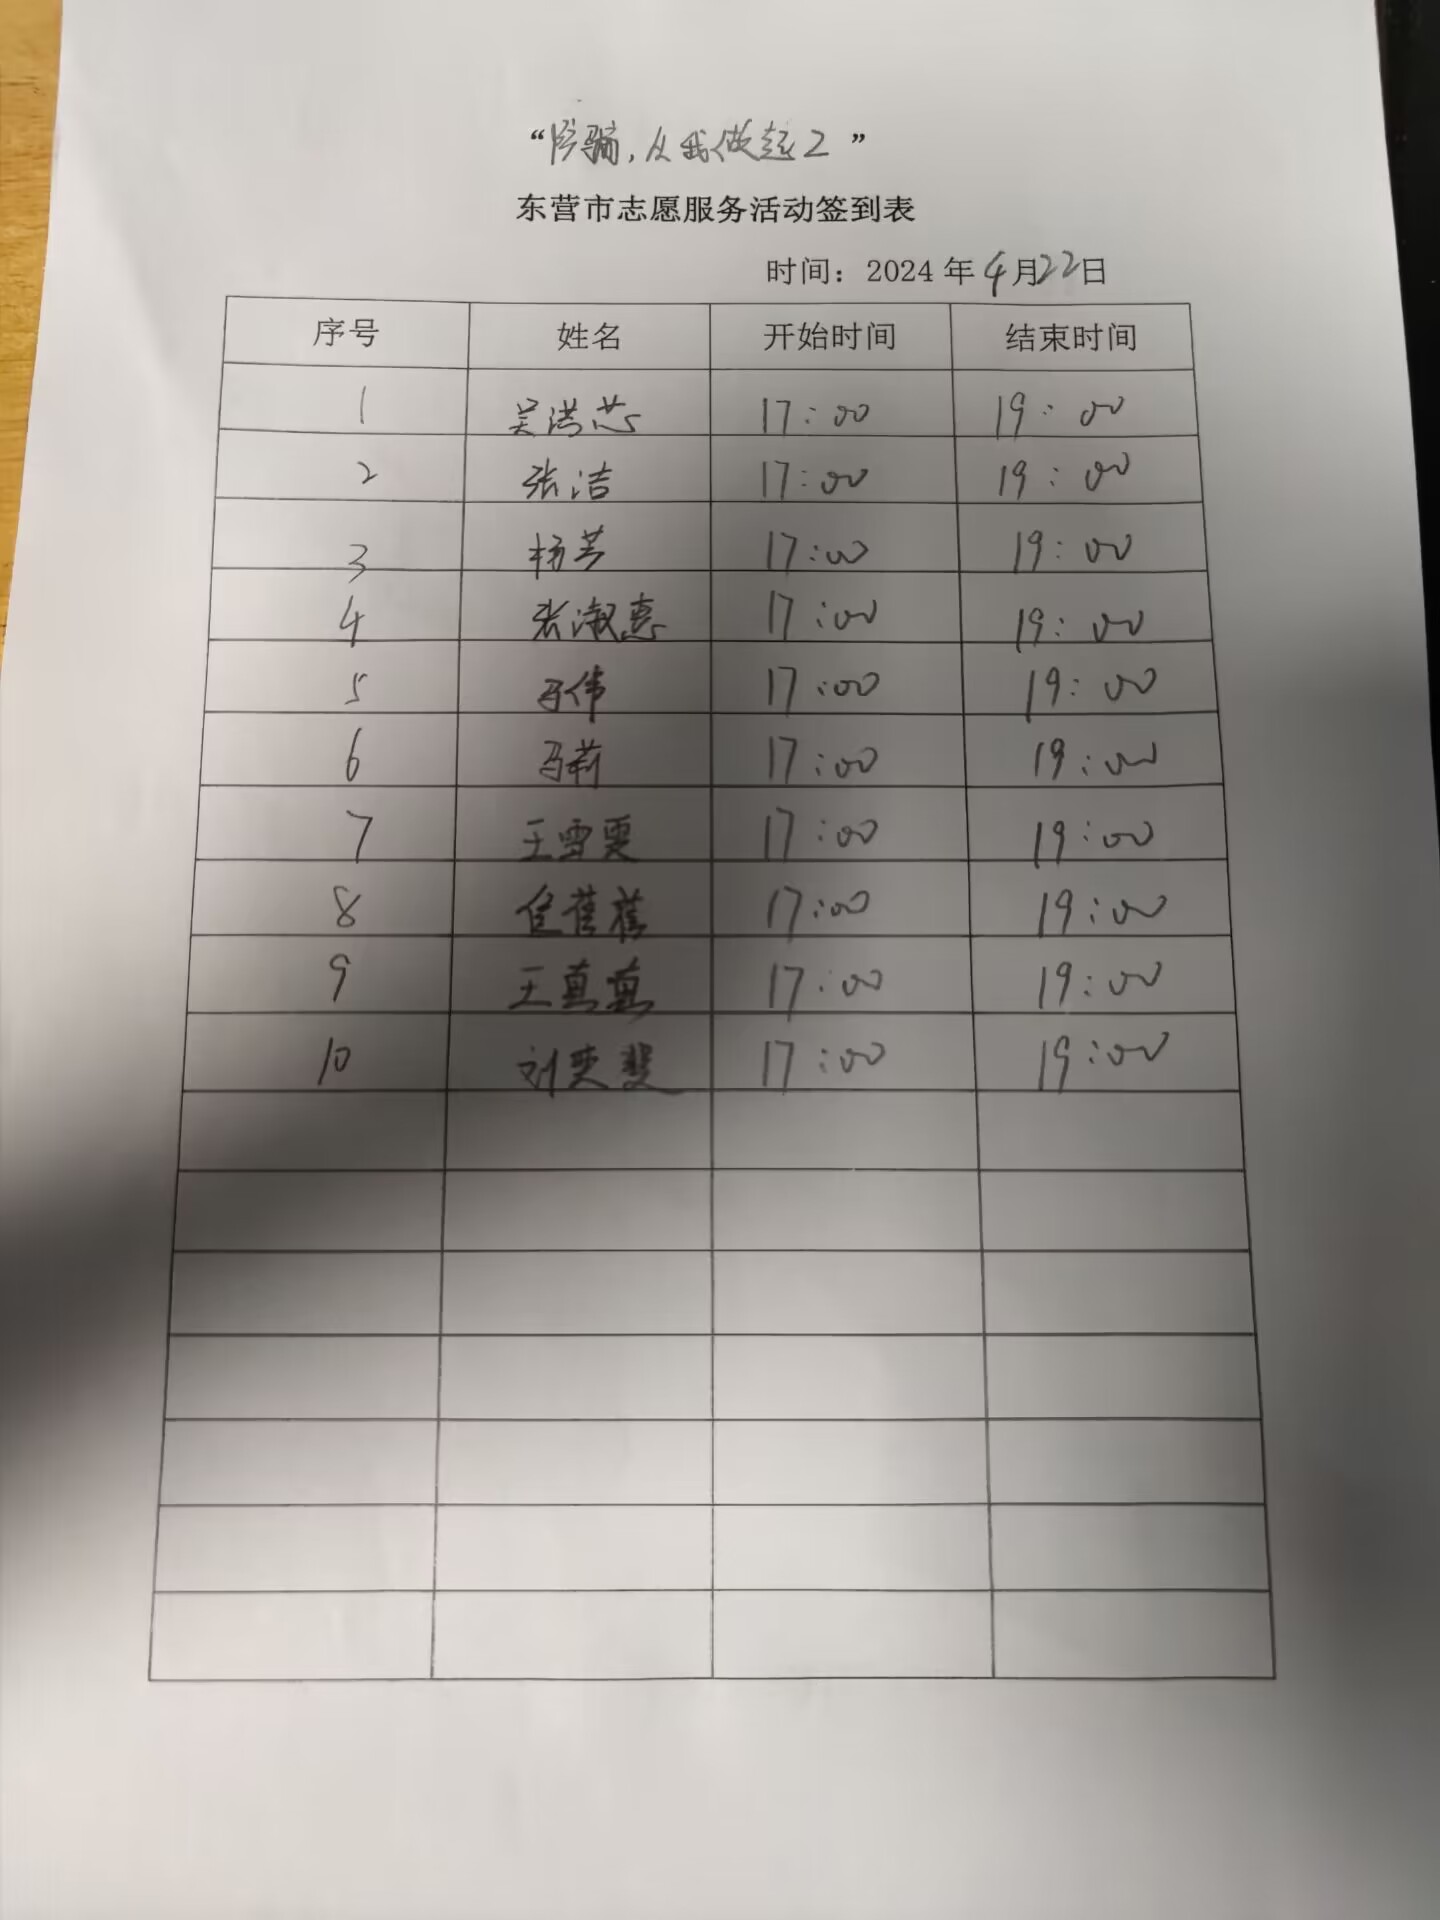 “防骗，从我做起2”
东营市志愿服务活动签到表
时间：2024年4月22日
序号 姓名 开始时间 结束时间
1 吴洪芯 17:00 19:00
2 张洁 17:00 19:00
3 杨芳 17:00 19:00
4 张淑惠 17:00 19:00
5 马伟 17:00 19:00
6 马莉 17:00 19:00
7 王雪雯 17:00 19:00
8 蓓蓓 17:00 19:00
9 王真真 17:00 19:00
10 刘 斐 17:00 19:00